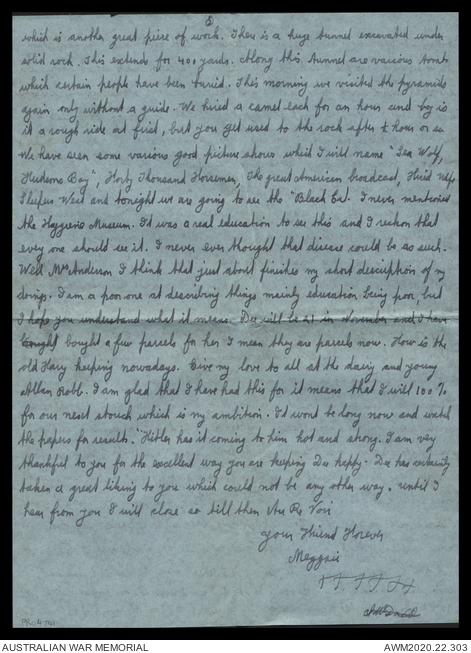 5
which is another great piece of work. There is a huge tunnel excavated under
solid rock. This extends for 400 yards. Along this tunnel are various tombs
which certain people have been buried. This morning we visited the pyramids
again only without a guide. We hired a camel each for an hour and boy is
it a rough ride at first, but you get used to the rock after ½ hour or so
We have seen some various good picture shows which I will name "Sea Wolf,
Hudsons Bay", Forty Thousand Horsemen, The great American broadcast,
Sleepers West and tonight we are going to see the "Black Cat. I never mentioned
the Hygiene Museum. It was a real education to see this and I reckon that
every one should see it. I never ever thought that disease could be as such.
Well Mrs Anderson I think that just about finishes my short description of my
doings. I am a poor one at describing things mainly education being poor, but
I hope you understand what it means. Dee will be 21 in November and I have
bought a few parcels for her I mean they are parcels now. How is the
old Harry keeping nowadays. Give my love to all at the dairy and young
Allan Robb. I am glad that I have had this for it means that I will 100%
for our next which is my ambition. It wont be long now and watch
the papers for results. "Hitler has it coming to him hot and strong. I am very
thankful to you for the excellent way you are keeping Dee happy. Dee has certainly
taken a great liking to you which could not be any other way. Until I
hear from you I will close so till then Au Re Voir
Your Friend Forever
Meggsie
PR04741
AUSTRALIAN WAR MEMORIAL
AWM2020.22.303